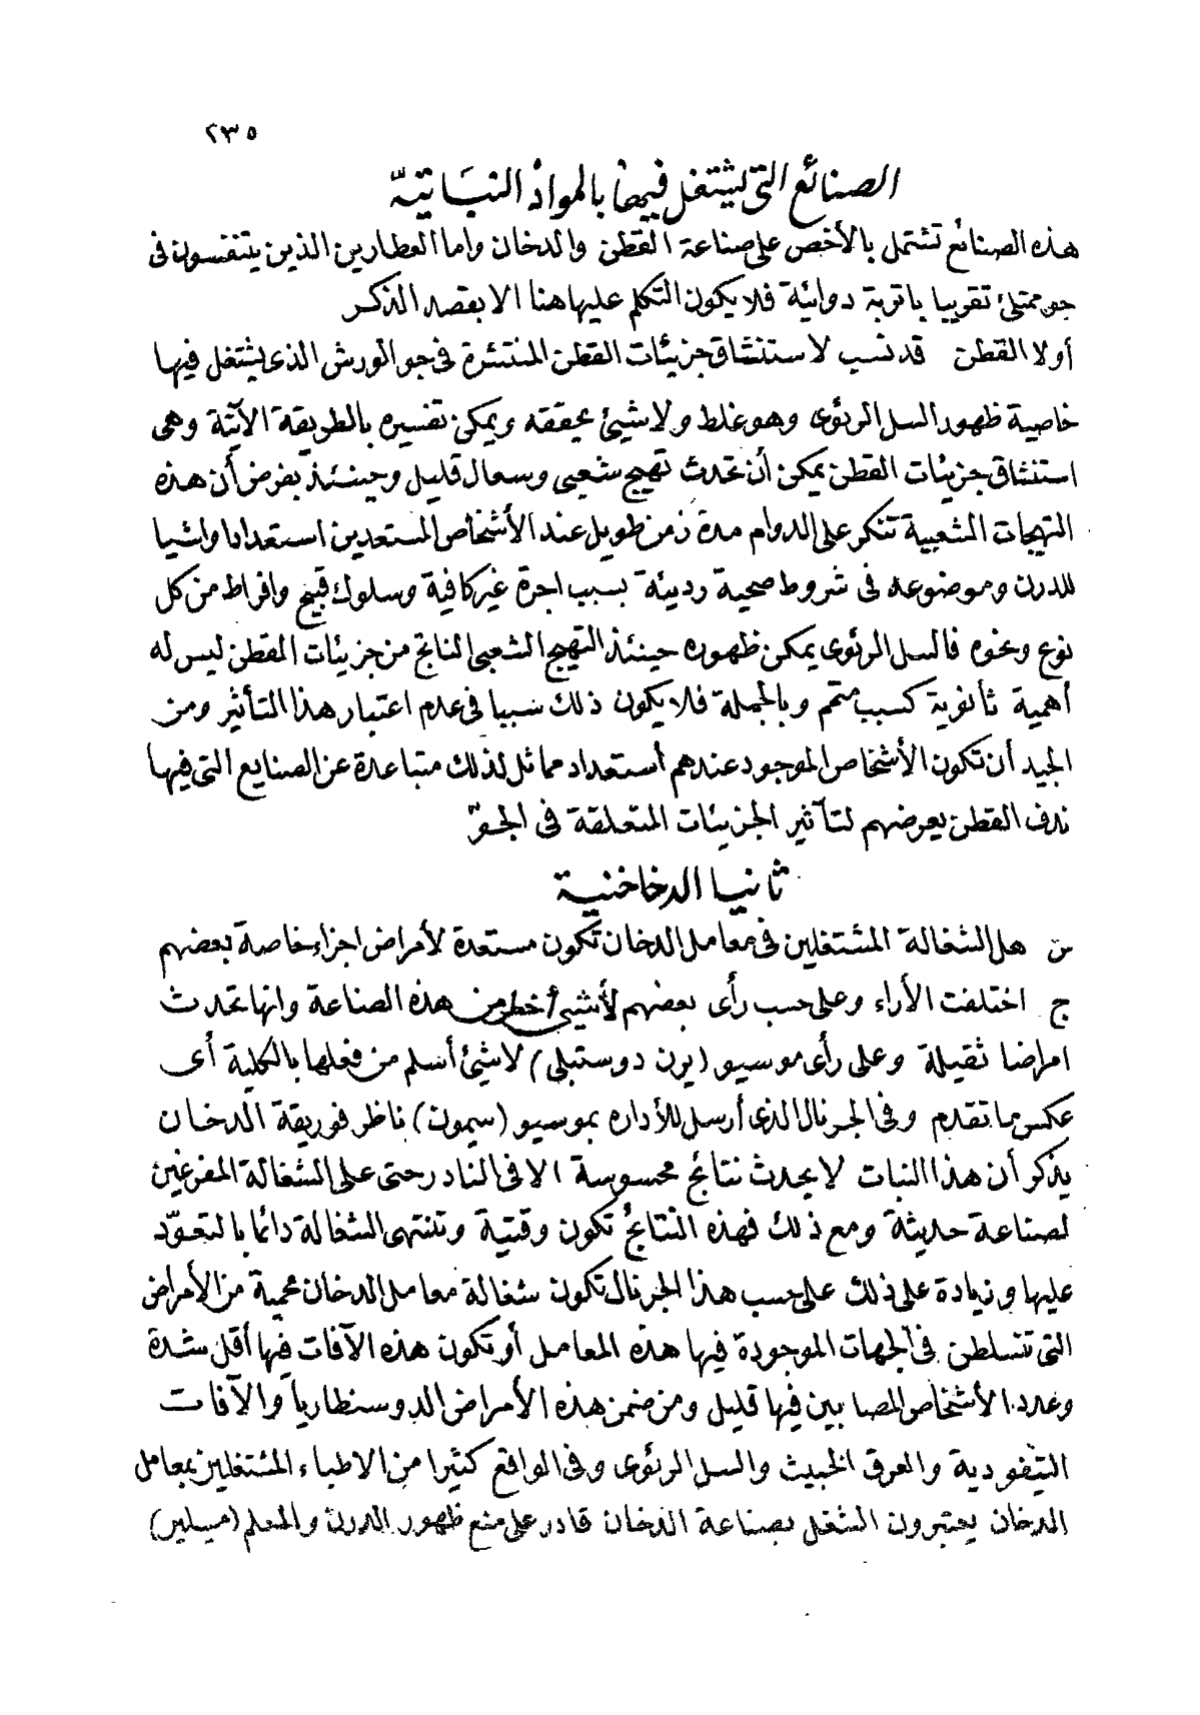 ٢٣٥
الصنائع التى يشتغل فيها بالمواد النباتيّة
هذه الصنائع تشتمل بالأخص على صناعة القطن والدخان واما العطارين الذين يتنفسون فى
جو ممتلئ تقريبا باتربة دوائية فلا يكون التكلم عليها هنا الا بقصد الذكر
أولا القطن قد نسب لاستنشاق جزيئات القطن المنتشرة فى جو الورش الذى يشتغل فيها
خاصية ظهور السل الرئوى وهو غلط ولا شيئ يحققه ويمكن تفسيره بالطريقة الآتية وهى
استنشاق جزيئات القطن يمكن أن تحدث تهيج شعبى وسعال قليل وحينئذ بفرض أن هذه
التهيجات الشعبية تتكر على الدوام مدة زمن طويل عند الأشخاص المستعدين استعدادا واثيا
للدرن وموضوعه فى شروط صحية رديئة بسبب اجرة غير كافية وسلوك قبيح وافراط من كل
نوع ونحوه فالسل الرئوى يمكن ظهوره حينئذ التهيج الشعبى الناتج من جزيئات القطن ليس له
أهمية ثانوية كسبب متمم وبالجملة فلا يكون ذلك سببا فى عدم اعتبار هذا التأثير ومن
الجيد أن تكون الأشخاص الموجود عندهم استعداد مماثل لذلك متباعدة عن الصنايع التى فيها
ندف القطن يعرضهم لتأثير الجزيئات المتعلقة فى الجوّ
ثانيا الدخاخنية
س هل الشغالة المشتغلين فى معامل الدخان تكون مستعدة لأمراض اجزاء خاصة بعضهم
ج اختلفت الأراء وعلى حسب رأى بعضهم لأشيئ أخطر من هذه الصناعة وانها تحدث
امراضا ثقيلة وعلى رأى موسيو (يرن دوستبلى) لاشيئ أسلم من فعلها بالكلية أى
عكس ما تقدم وفى الجرنال الذى أرسل للأداره بموسيو (سيمون) ناظر فوريقة الدخان
يذكر أن هذا النبات لا يحدث نتائج محسوسة الا فى النادر حتى على الشغالة المفرغين
لصناعة حديثة ومع ذلك فهذه النتائج تكون وقتية وتنتهى الشغالة دائما بالتعوّد
عليها وزيادة على ذلك على حسب هذا الجرنال تكون شغالة معامل الدخان محمية من الأمراض
التى تتسلطن فى الجهات الموجودة فيها هذه المعامل أو تكون هذه الآفات فيها أقل شدة
وعدد الأشخاص المصابين فيها قليل ومن ضمن هذه الأمراض الدوسنطاريا والآفات
التيفودية والعرق الخبيث والسل الرئوى وفى الواقع كثيرا من الاطباء المشتغلين بمعامل
الدخان يعتبرون الشغل بصناعة الدخان قادر على منع ظهور الدرن والمعلم (ميلير)